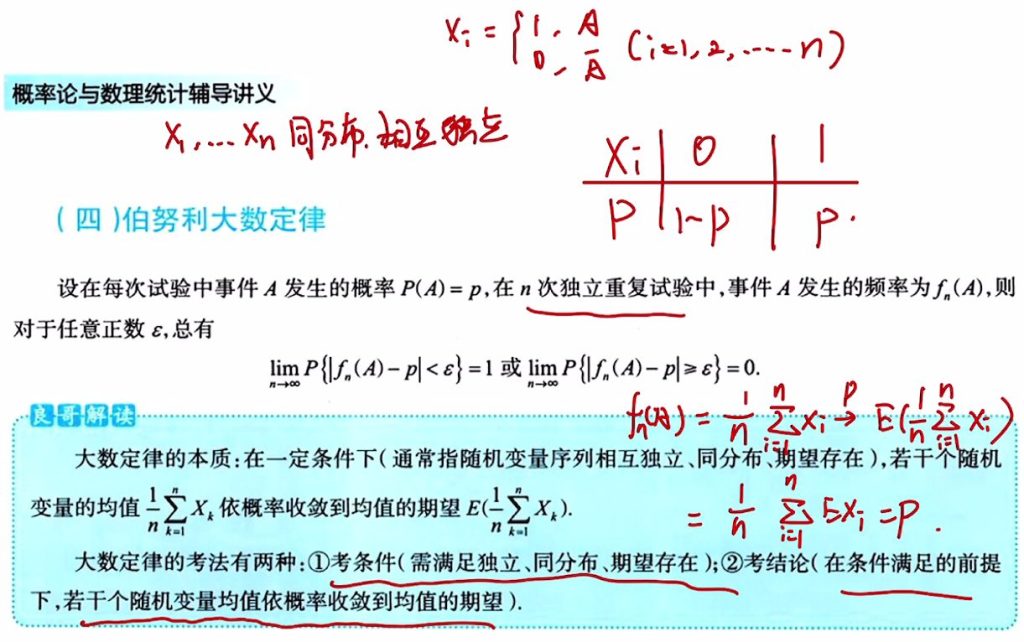 Xi = { 1, A
0, Ā (i=1, 2, ······ n)
概率论与数理统计辅导讲义
X₁, ... Xn 同分布、相互独立
Xi | 0 | 1
P | 1-p | p.
(四)伯努利大数定律
设在每次试验中事件 A 发生的概率 P(A) = p,在 n 次独立重复试验中,事件 A 发生的频率为 fₙ(A),则
对于任意正数 ε,总有
lim_{n→∞} P{|fₙ(A) - p| < ε} = 1 或 lim_{n→∞} P{|fₙ(A) - p| ≥ ε} = 0.
fn(A) = 1/n ∑_{i=1}^{n} Xi →^P E(1/n ∑_{i=1}^{n} Xi)
良哥解读
大数定律的本质:在一定条件下(通常指随机变量序列相互独立、同分布、期望存在),若干个随机
变量的均值 1/n ∑_{k=1}^{n} X_k 依概率收敛到均值的期望 E(1/n ∑_{k=1}^{n} X_k).
= 1/n ∑_{i=1}^{n} EXi = p.
大数定律的考法有两种:①考条件(需满足独立、同分布、期望存在);②考结论(在条件满足的前提
下,若干个随机变量均值依概率收敛到均值的期望).